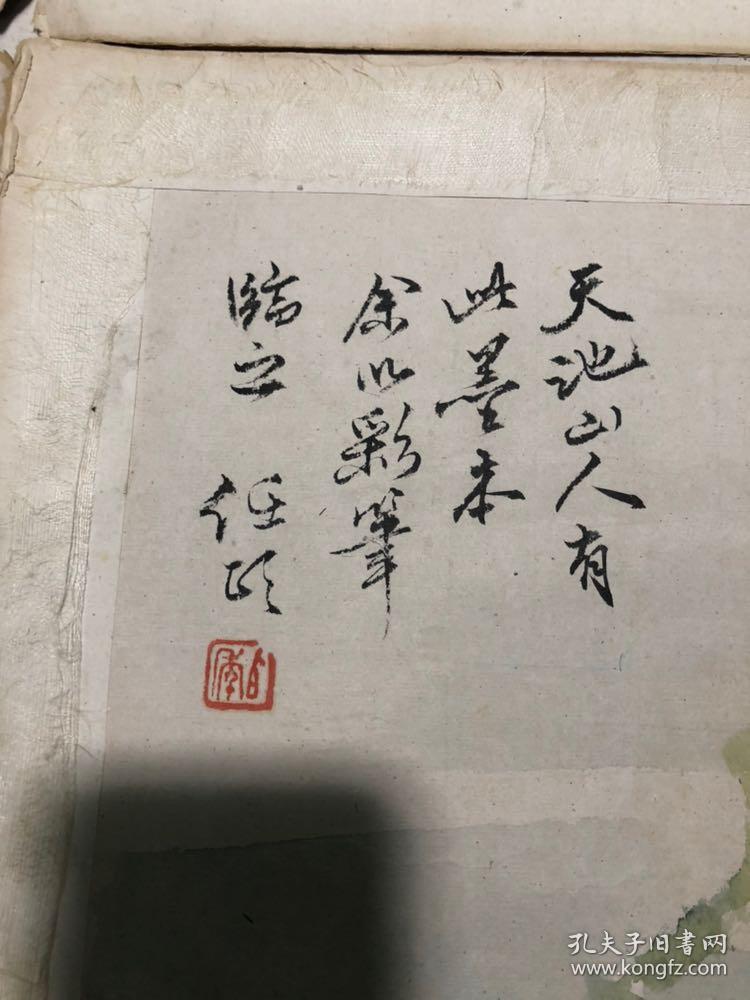 天池山人有
此墨本
余以彩筆
臨之 任頤
伯年
孔夫子旧書网
www.kongfz.com